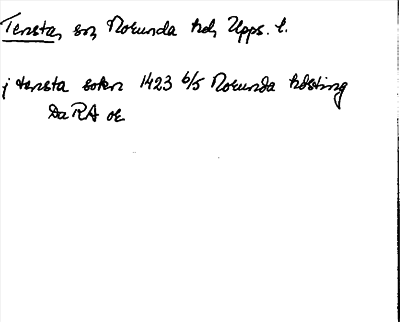 Tensta, sn, Norunda hd, Upps. l.
j tensta sokn 1423 6/5 Norunda hdsting
DaRA or